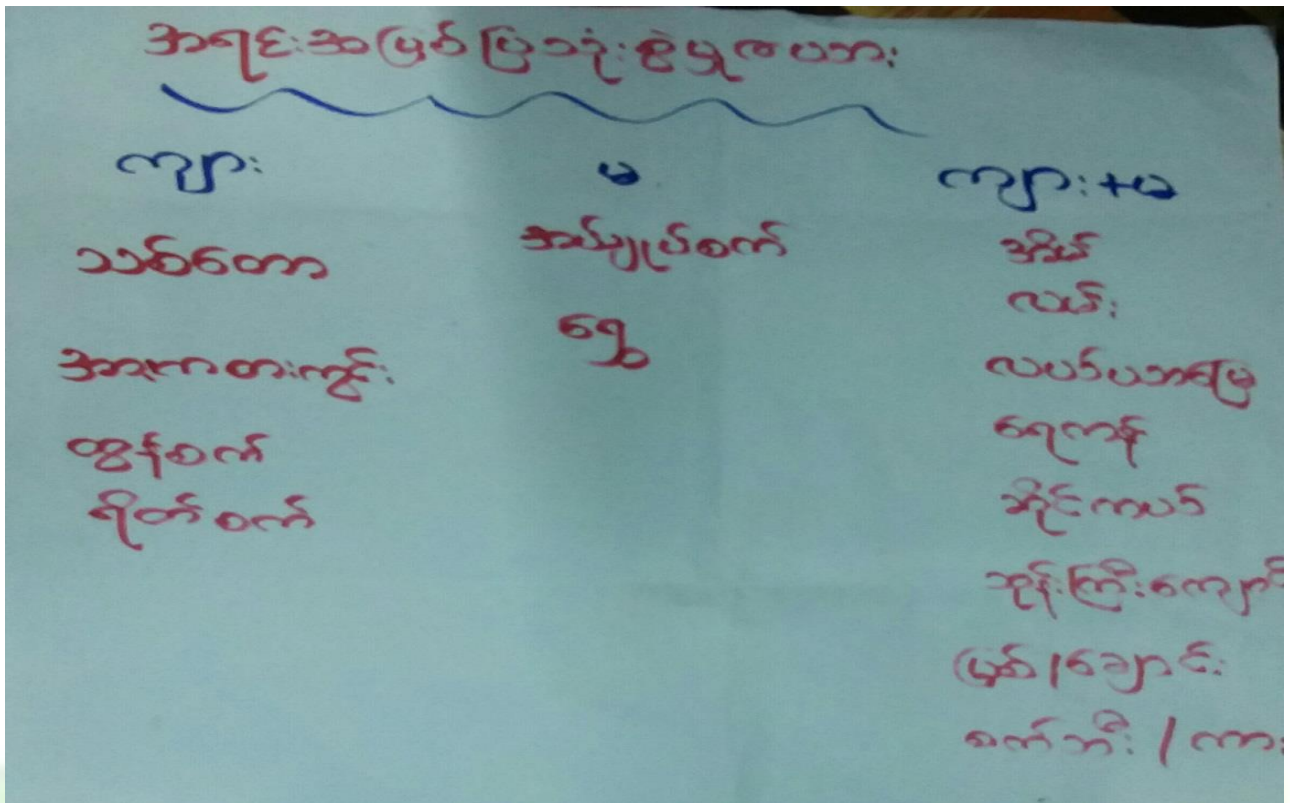 အရင်းအမြစ်ပြသုံးစွဲမှုဇယား
ကျား မ ကျား+မ
သစ်တော အပ်ချုပ်စက် အိမ်
လယ်
အားကစားကွင်း ရွှေ လယ်ယာမြေ
ထွန်စက် ရေကန်
ရိတ်စက် ဆိုင်ကယ်
ဘုန်းကြီးကျောင်
မြစ်/ချောင်း
စက်ဘီး/ကား